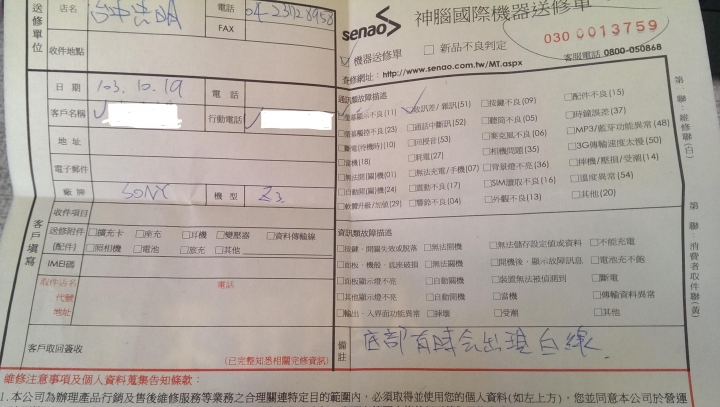 神腦國際機器送修單
senao
030 0013759
機器送修單 □ 新品不良判定
客服電話 0800-050868
查修網址：http://www.senao.com.tw/MT.aspx
送修單位
店名
電話
FAX
收件地點
日期 103.10.19 電話
客戶名稱 行動電話
地址
電子郵件
廠牌 SONY 機型 Z3
客戶填寫
收件項目
送修附件(配件) □擴充卡 □座充 □耳機 □變壓器 □資料傳輸線
□照相機 □電池 □旅充 □其他
IMEI碼
取件店名 電話
代號
地址
客戶取回簽收 (已完整知悉相關完修資訊)
通訊類故障描述
螢幕顯示不良(11) 收訊差/雜訊(51) □按鍵不良(09) □配件不良(15)
螢幕觸控不良(23) □通話中斷(52) □聽筒不良(05) □時鐘誤差(37)
斷電(待機時)(10) □回授音(53) □麥克風不良(06) □MP3/藍芽功能異常(48)
□當機(18) □耗電(27) □相機問題(35) □3G傳輸速度太慢(50)
□無法開(關)機(01) □無法充電/手機(07) □背景燈不亮(36) □摔機/壓損/受潮(14)
□自動開(關)機(24) □震動不良(17) □SIM讀取不良(16) □溫度異常(54)
□軟體升級/加值(29) □響鈴不良(04) □外觀不良(13) □其他(20)
資訊類故障描述
□按鍵、開關失效或脫落 □無法開機 □無法儲存設定值或資料 □不能充電
□面板、機殼、底座破損 □無法關機 □開機後，顯示故障訊息 □電池充不飽
□面板顯示燈不亮 □自動關機 □裝置無法被偵測到 □斷電
□其他顯示燈不亮 □自動開機 □當機 □傳輸資料異常
□輸出、入界面功能異常 □摔壞 □受潮 □其他
備註 底部有時會出現白線
第一聯：維修聯(白)
第二聯：消費者取件聯(黃)
維修注意事項及個人資料蒐集告知條款：
1.本公司為辦理產品行銷及售後維修服務等業務之合理關連特定目的範圍內，必須取得並使用您的個人資料(如左上方)，您並同意本公司於營運